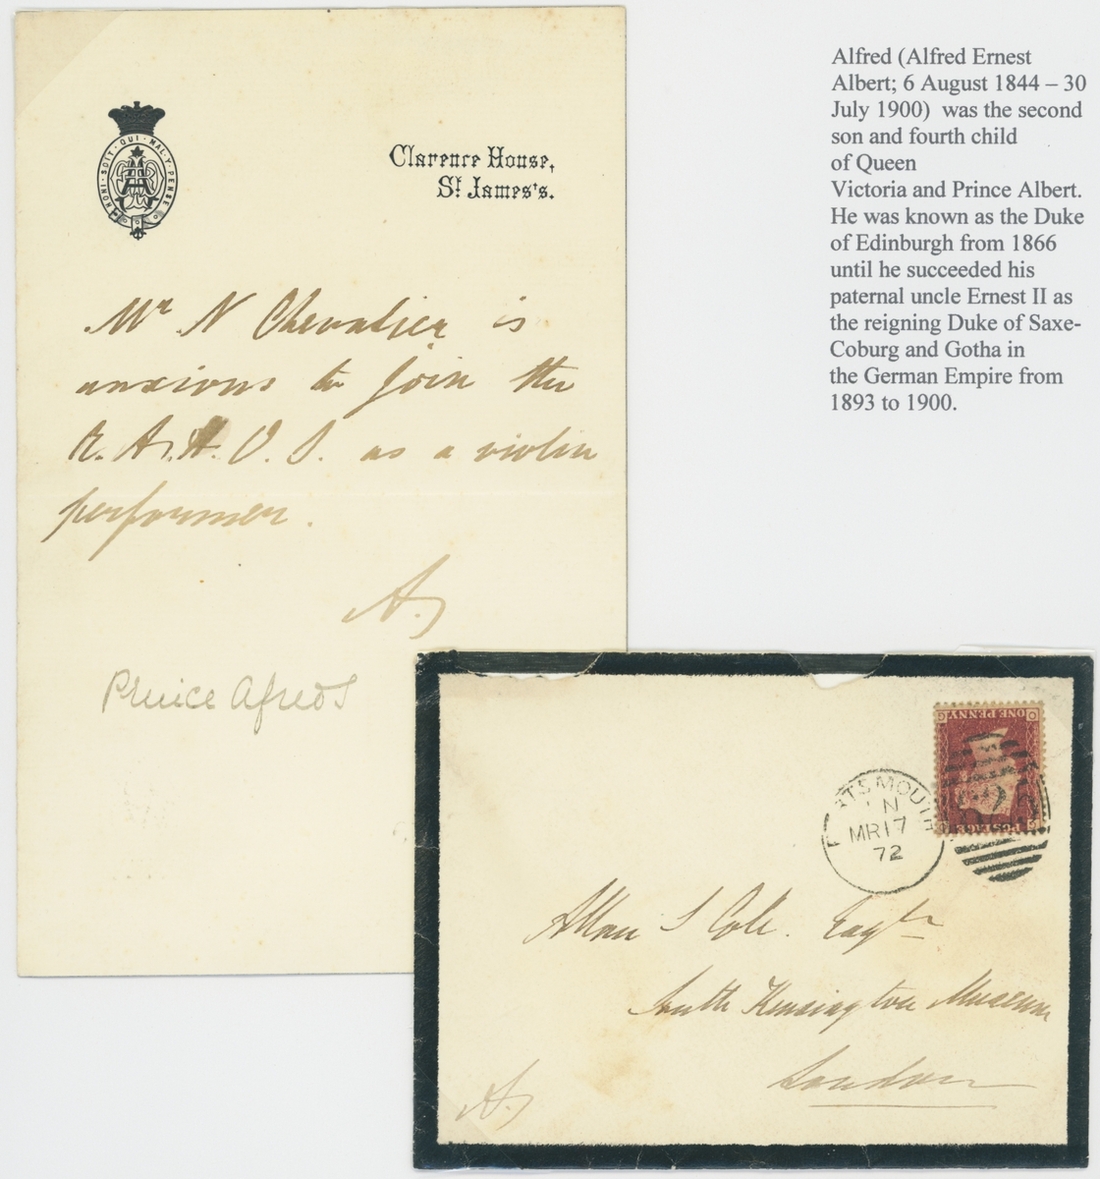 HONI · SOIT · QUI · MAL · Y · PENSE
Clarence House,
St. James's.
Mr N Chevalier is
anxious to join the
R. A. A. O. S. as a violin
performer.
A.
Prince Alfred
Alfred (Alfred Ernest
Albert; 6 August 1844 – 30
July 1900) was the second
son and fourth child
of Queen
Victoria and Prince Albert.
He was known as the Duke
of Edinburgh from 1866
until he succeeded his
paternal uncle Ernest II as
the reigning Duke of Saxe-
Coburg and Gotha in
the German Empire from
1893 to 1900.
ONE PENNY
POSTAGE
PORTSMOUTH
N
MR 17
72
Allan S Cole. Esqre
South Kensington Museum
London
A.